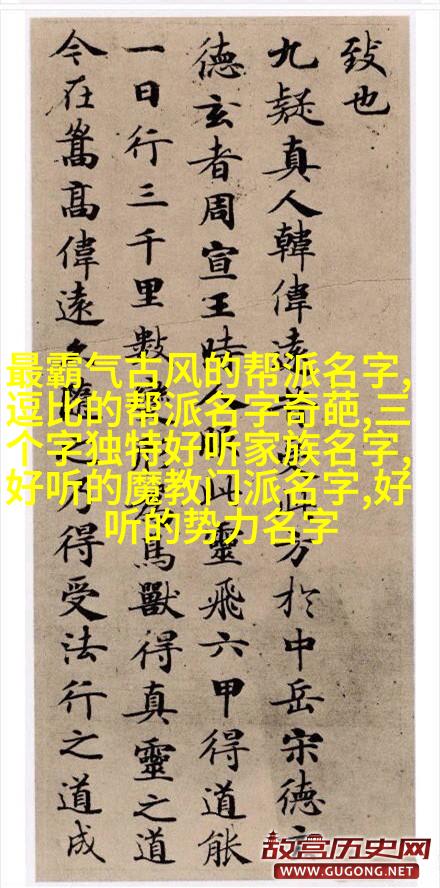 致也
九疑真人韓偉遠昔受此方於中岳宋德玄
德玄者周宣王時人服此靈飛六甲得道能
一日行三千里數變形為鳥獸得真靈之道
今在嵩高偉遠久隨之乃得受法行之道成
最霸气古风的帮派名字,
逗比的帮派名字奇葩,三
个字独特好听家族名字,
好听的魔教门派名字,好
听的势力名字
故宫历史网
WWW.GUGONG.NET